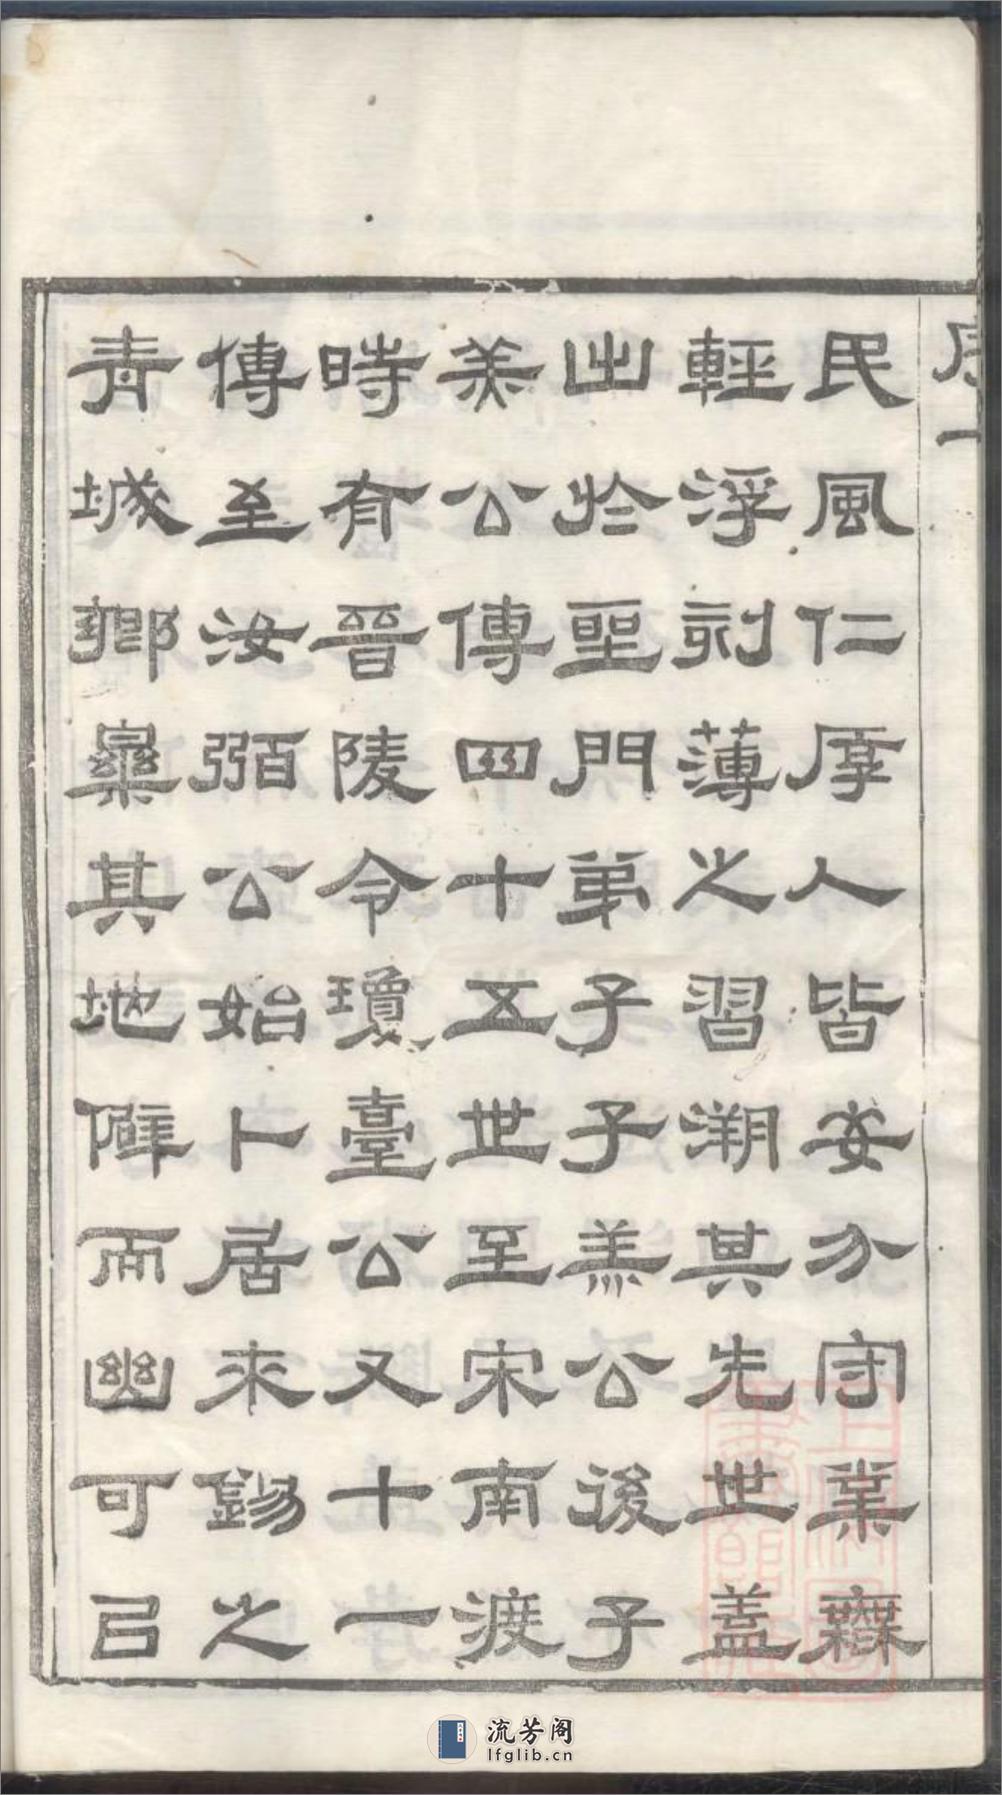 序一
民風仁厚人皆安分守業無
輕浮刻薄之習溯其先世蓋
出於聖門弟子子羔公後子
羔公傳四十五世至宋南渡
時有晉陵令瓊臺公又十一
傳至汝弼公始卜居來錫之
青城鄉畢其地僻而幽可以
流芳阁
lfglib.cn